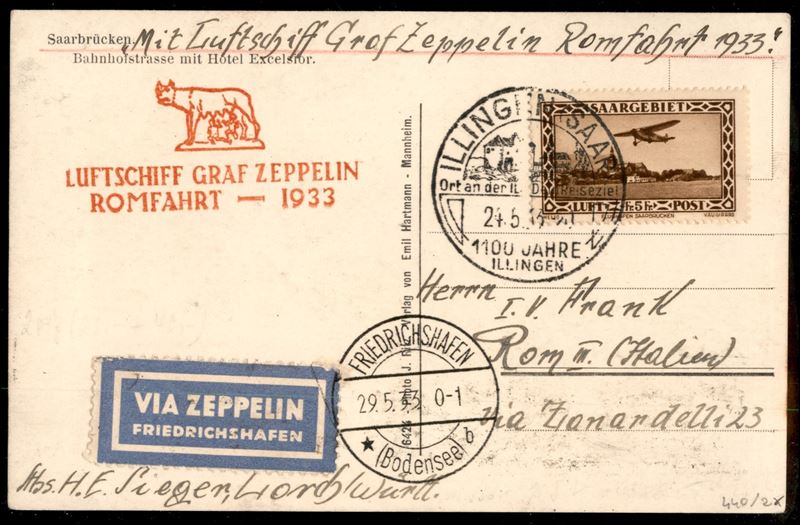 Saarbrücken. „Mit Luftschiff Graf Zeppelin Romfahrt 1933."
Bahnhofstrasse mit Hotel Excelsior.
LUFTSCHIFF GRAF ZEPPELIN
ROMFAHRT — 1933
ILLINGEN SAAR
Ort an der
Reiseziel
24.5.
1100 JAHRE
ILLINGEN
SAARGEBIET
LUFT 5 Fr. POST
SAARBRÜCKEN
Verlag von Emil Hartmann - Mannheim.
Herrn
I.V. Frank
Rom III. (Italien)
via Zanardelli 23
FRIEDRICHSHAFEN
29.5.33. 0-1
★ (Bodensee) b
6424
VIA ZEPPELIN
FRIEDRICHSHAFEN
Abs. H.E. Sieger, Lorch Württ.
440/2x